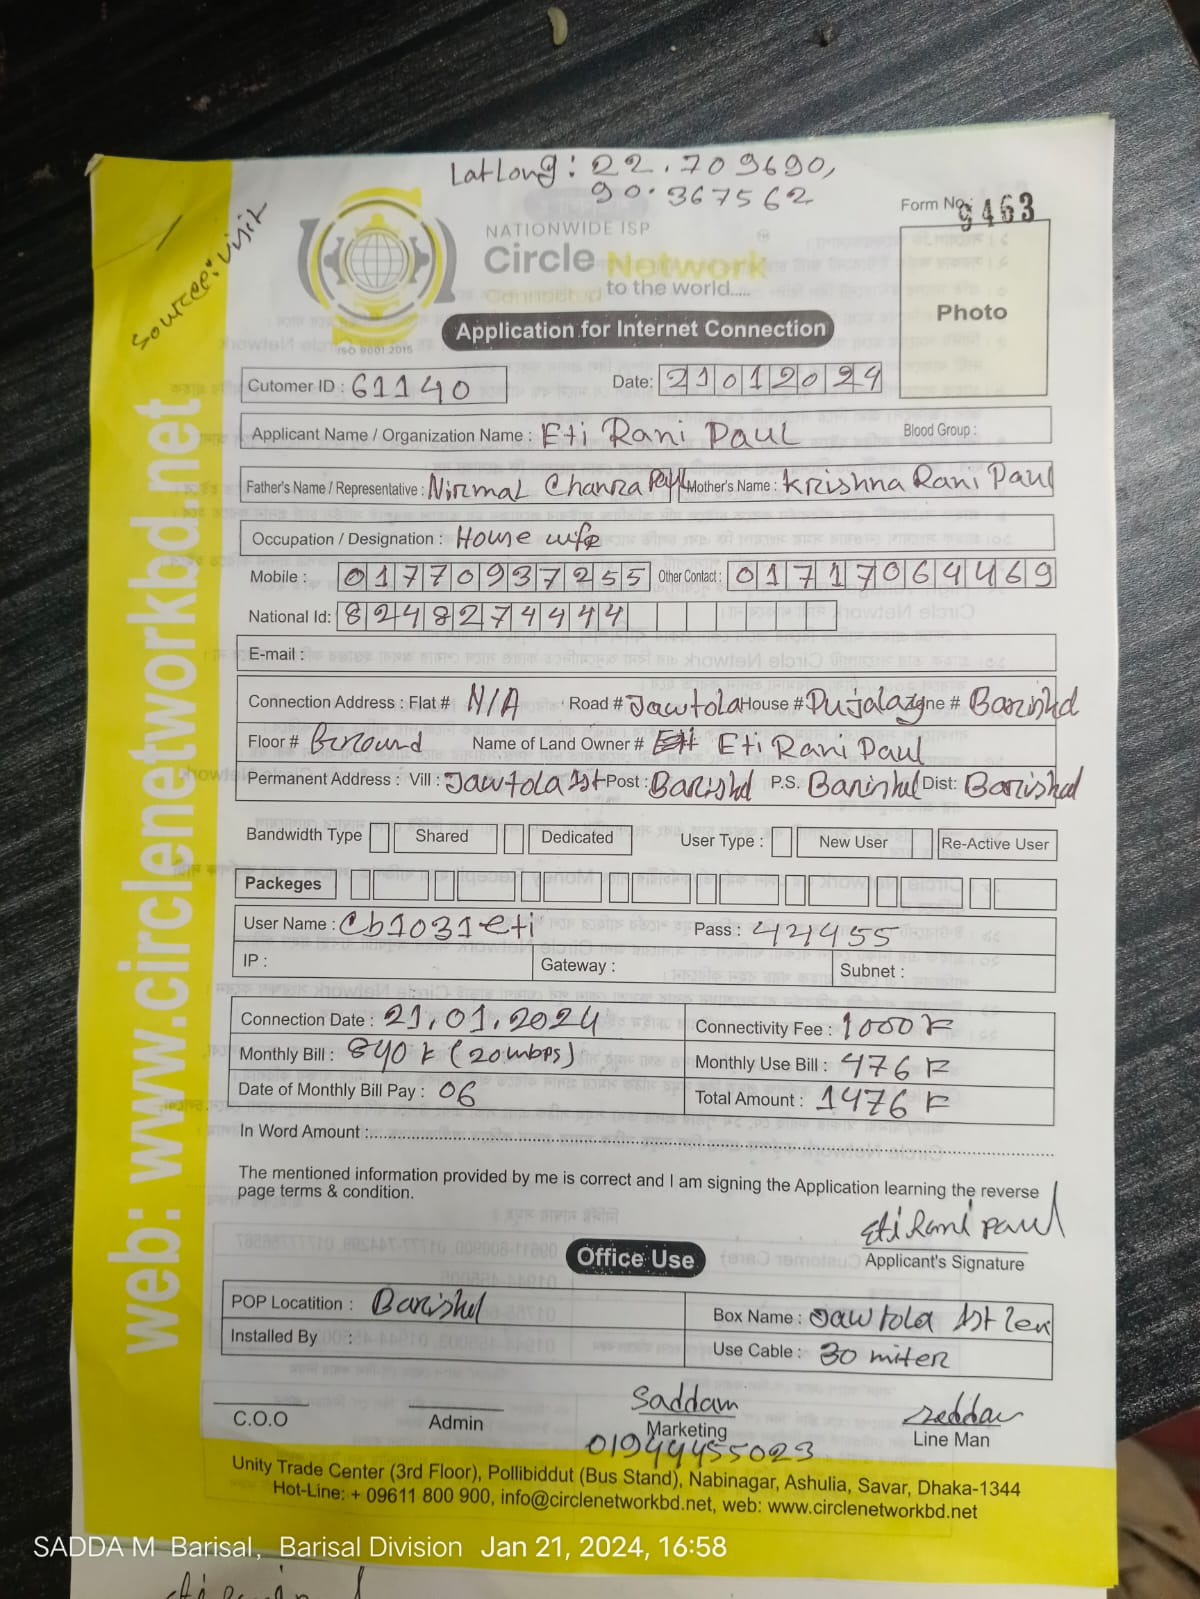 LatLong: 22.709690,
90.367562
Source: Visit
Form No: 9463
NATIONWIDE ISP
Circle Network
Connected to the world.....
ISO 9001:2015
Photo
Application for Internet Connection
Cutomer ID : 61140
Date: 21012024
Applicant Name / Organization Name : Eti Rani Paul
Blood Group :
Father's Name / Representative : Nirmal Chanra Paul Mother's Name : Krishna Rani Paul
Occupation / Designation : House wife
Mobile : 01770937255 Other Contact : 01717064469
National Id: 8248274444
E-mail :
Connection Address : Flat # N/A Road # Jawtola House # Pujala Zone # Barishal
Floor # Ground Name of Land Owner # Eti Rani Paul
Permanent Address : Vill : Jawtola 1st Post : Barishal P.S. Barishal Dist: Barishal
Bandwidth Type Shared Dedicated User Type : New User Re-Active User
Packeges
User Name : Cb1031eti Pass : 421455
IP : Gateway : Subnet :
Connection Date : 21.01.2024 Connectivity Fee : 1000 ৳
Monthly Bill : 840 ৳ (20mbps) Monthly Use Bill : 476 ৳
Date of Monthly Bill Pay : 06 Total Amount : 1476 ৳
In Word Amount :
The mentioned information provided by me is correct and I am signing the Application learning the reverse
page terms & condition.
Eti Rani Paul
Applicant's Signature
Office Use
POP Locatition : Barishal Box Name : Jawtola 1st len
Installed By : Use Cable : 30 miter
Saddam
C.O.O Admin Marketing Line Man
01944455023
Unity Trade Center (3rd Floor), Pollibiddut (Bus Stand), Nabinagar, Ashulia, Savar, Dhaka-1344
Hot-Line: + 09611 800 900, info@circlenetworkbd.net, web: www.circlenetworkbd.net
web: www.circlenetworkbd.net
SADDA M Barisal, Barisal Division Jan 21, 2024, 16:58